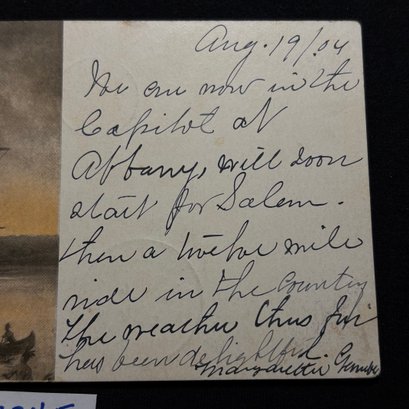 Aug. 19/04
We are now in the
Capitol at
Albany, will soon
start for Salem.
then a twelve mile
ride in the country
the weather thus far
has been delightful.